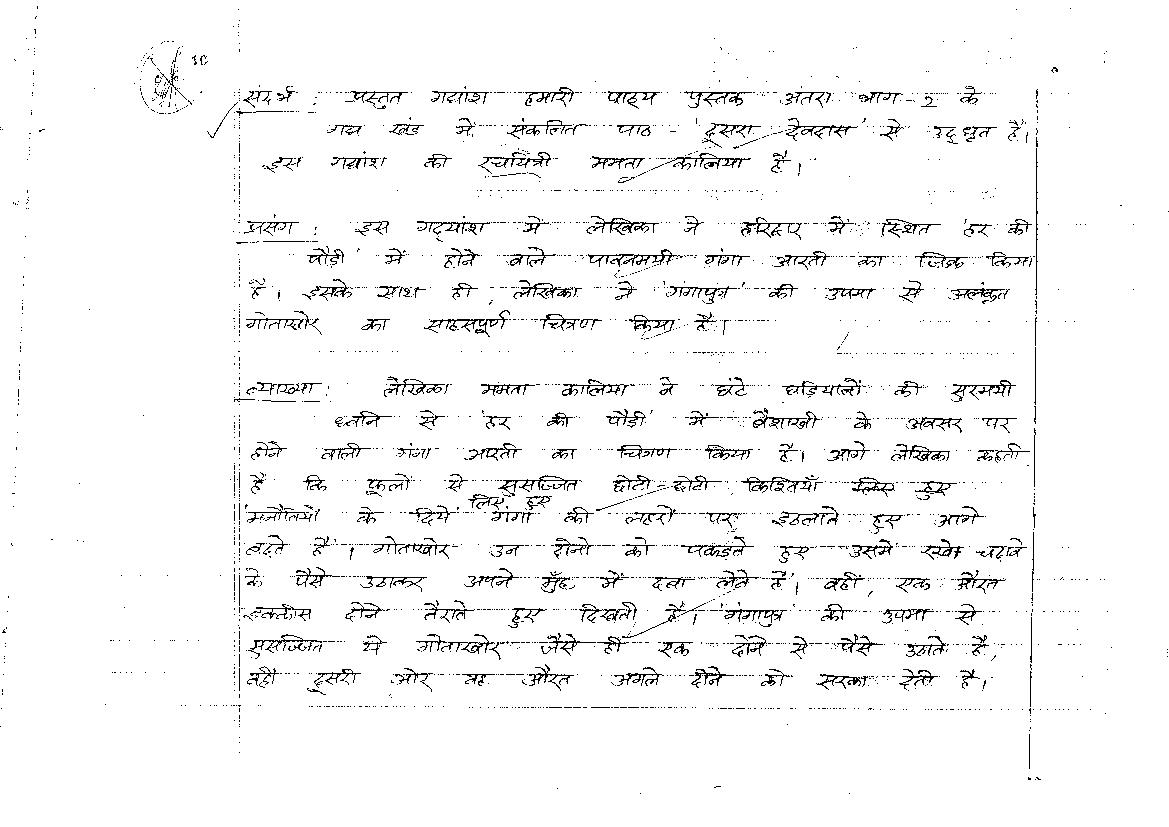 10
संदर्भ : प्रस्तुत गद्यांश हमारी पाठ्य पुस्तक अंतरा भाग - 2 के
गद्य खंड में संकलित पाठ - 'दूसरा देवदास' से उद्धृत है।
इस गद्यांश की रचयित्री ममता कालिया है।
प्रसंग : इस गद्यांश में लेखिका ने हरिद्वार में स्थित 'हर की
पौड़ी' में होने वाले पावनमयी गंगा आरती का जिक्र किया
है। इसके साथ ही, लेखिका ने 'गंगापुत्र' की उपमा से अलंकृत
गोताखोर का साहसपूर्ण चित्रण किया है।
व्याख्या : लेखिका ममता कालिया ने घंटे घड़ियालों की सुरमयी
ध्वनि से 'हर की पौड़ी' में बैशाखी के अवसर पर
होने वाली गंगा आरती का चित्रण किया है। आगे लेखिका कहती
है कि फूलों से सुसज्जित छोटी-छोटी किश्तियाँ लिए हुए
लिए हुए
'मनौतियों के दिये' गंगा की लहरों पर इठलाते हुए आगे
बढ़ते है। गोताखोर उन दोनो को पकड़ते हुए उसमें रखे चढ़ावे
के पैसे उठाकर अपने मुँह में दबा लेते हैं। वहीं, एक औरत
इक्कीस दोने तैराते हुए दिखती है। 'गंगापुत्र' की उपमा से
सुसज्जित ये गोताखोर जैसे ही एक दोने से पैसे उठाते है,
वहीं दूसरी ओर वह औरत अगले दोने को सरका देती है।